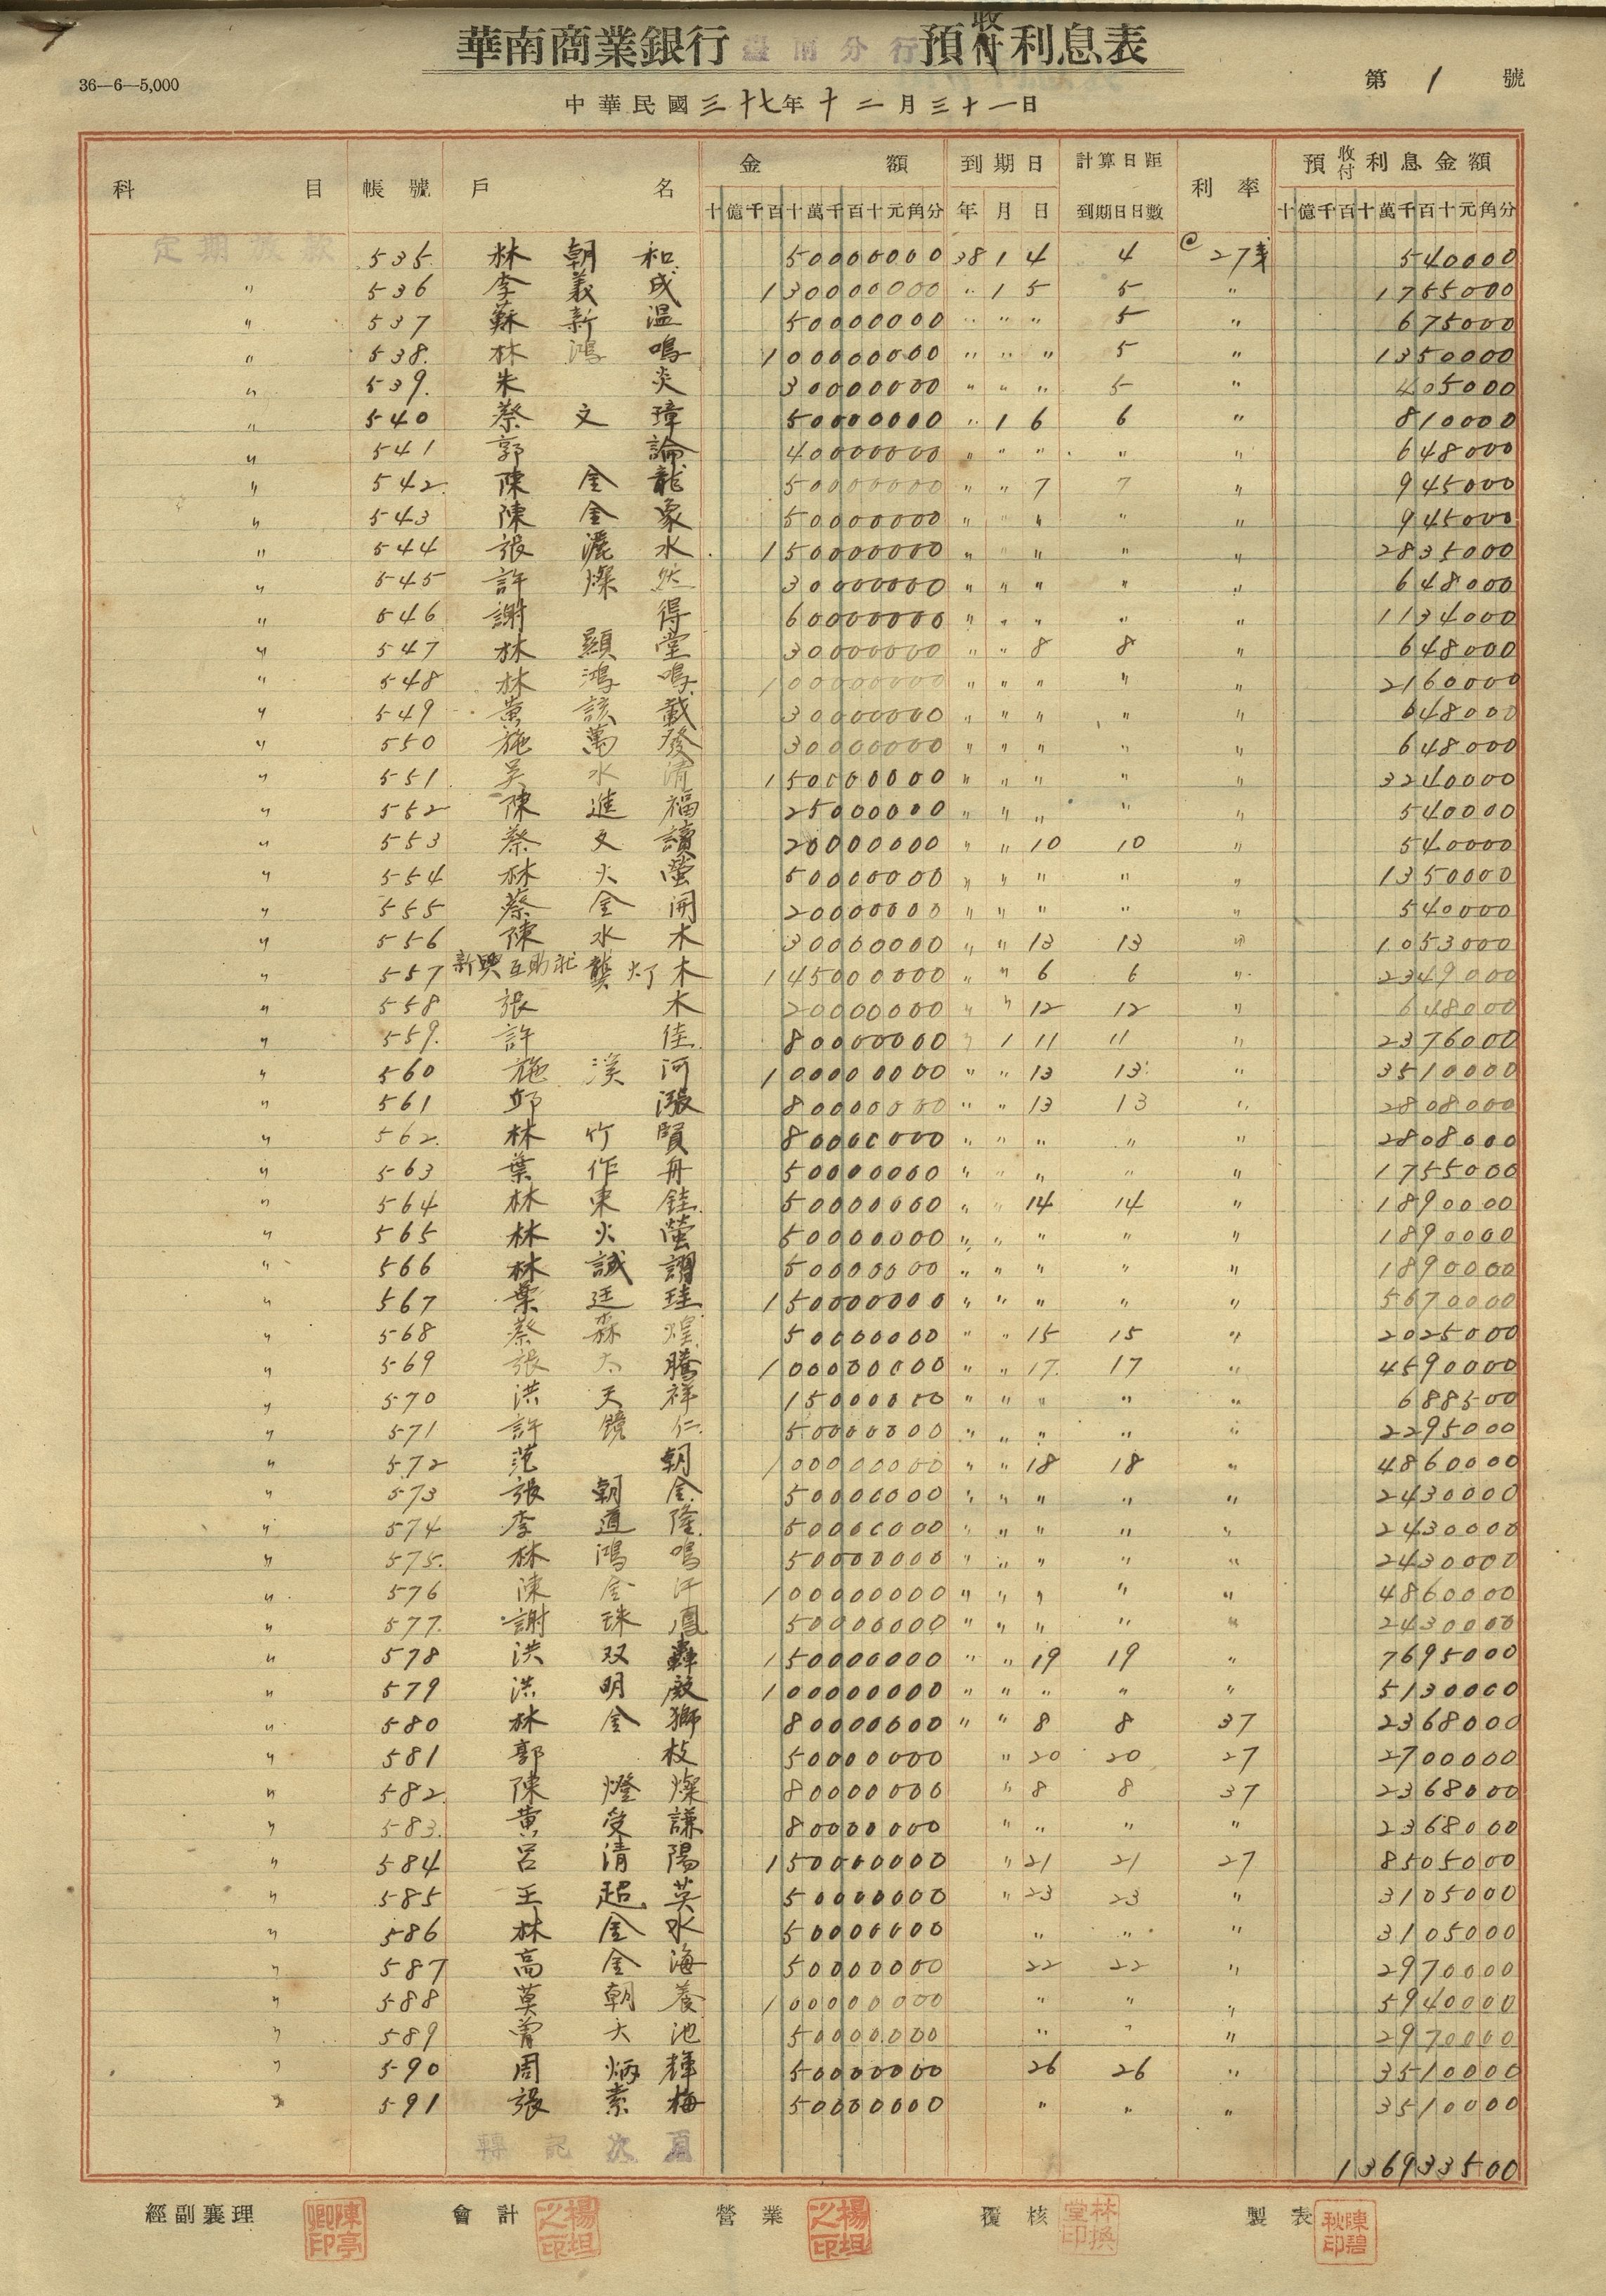 華南商業銀行 臺南分行 預收付利息表
36—6—5,000
第 1 號
中華民國三十七年十二月三十一日
科目 帳號 戶名 金額 到期日 計算日距到期日日數 利率 預收付利息金額
十億千百十萬千百十元角分 年 月 日 十億千百十萬千百十元角分
定期放款 535 林朝和 50000000 38 1 4 4 @27 540000
〃 536 李義成 130000000 〃 1 5 5 〃 1755000
〃 537 蘇新温 50000000 〃 〃 〃 5 〃 675000
〃 538 林鴻鳴 100000000 〃 〃 〃 5 〃 1350000
〃 539 朱炎 30000000 〃 〃 〃 5 〃 405000
〃 540 蔡文璋 50000000 〃 1 6 6 〃 810000
〃 541 郭論 40000000 〃 〃 〃 〃 〃 648000
〃 542 陳金龍 50000000 〃 〃 7 7 〃 945000
〃 543 陳金象 50000000 〃 〃 〃 〃 945000
〃 544 張灑水 150000000 〃 〃 〃 〃 〃 2835000
〃 545 許燦然 30000000 〃 〃 〃 〃 〃 648000
〃 546 謝得 60000000 〃 〃 〃 〃 〃 1134000
〃 547 林顯堂 30000000 〃 〃 8 8 〃 648000
〃 548 林鴻鳴 100000000 〃 〃 〃 〃 〃 2160000
〃 549 黃該載 30000000 〃 〃 〃 〃 〃 648000
〃 550 施萬發 30000000 〃 〃 〃 〃 〃 648000
〃 551 吳水清 150000000 〃 〃 〃 〃 〃 3240000
〃 552 陳進福 25000000 〃 〃 〃 〃 〃 540000
〃 553 蔡文讀 20000000 〃 〃 10 10 〃 540000
〃 554 林火螢 50000000 〃 〃 〃 〃 〃 1350000
〃 555 蔡金開 20000000 〃 〃 〃 〃 〃 540000
〃 556 陳水木 30000000 〃 〃 13 13 〃 1053000
〃 557 新興互助社 龔灯木 145000000 〃 〃 6 6 〃 2349000
〃 558 張木 20000000 〃 〃 12 12 〃 648000
〃 559 許佳 80000000 〃 1 11 11 〃 2376000
〃 560 施溪河 100000000 〃 〃 13 13 〃 3510000
〃 561 邱漲 80000000 〃 〃 13 13 〃 2808000
〃 562 林竹賢 80000000 〃 〃 〃 〃 〃 2808000
〃 563 葉作舟 50000000 〃 〃 〃 〃 〃 1755000
〃 564 林東銈 50000000 〃 〃 14 14 〃 1890000
〃 565 林火螢 50000000 〃 〃 〃 〃 〃 1890000
〃 566 林誠謂 50000000 〃 〃 〃 〃 〃 1890000
〃 567 葉廷珪 150000000 〃 〃 〃 〃 〃 5670000
〃 568 蔡森煌 50000000 〃 〃 15 15 〃 2025000
〃 569 張太騰 100000000 〃 〃 17 17 〃 4590000
〃 570 洪天祥 15000000 〃 〃 〃 〃 〃 688500
〃 571 許鏡仁 50000000 〃 〃 〃 〃 〃 2295000
〃 572 范朝 100000000 〃 〃 18 18 〃 4860000
〃 573 張朝金 50000000 〃 〃 〃 〃 〃 2430000
〃 574 李道隆 50000000 〃 〃 〃 〃 〃 2430000
〃 575 林鴻鳴 50000000 〃 〃 〃 〃 〃 2430000
〃 576 陳金汗 100000000 〃 〃 〃 〃 〃 4860000
〃 577 謝珠鳳 50000000 〃 〃 〃 〃 〃 2430000
〃 578 洪双轟 150000000 〃 〃 19 19 〃 7695000
〃 579 洪明殿 100000000 〃 〃 〃 〃 〃 5130000
〃 580 林金獅 80000000 〃 〃 8 8 37 2368000
〃 581 郭枝 50000000 〃 20 20 27 2700000
〃 582 陳燈燦 80000000 〃 8 8 37 2368000
〃 583 黄受謙 80000000 〃 〃 〃 〃 2368000
〃 584 呂清陽 150000000 〃 21 21 27 8505000
〃 585 王超英 50000000 〃 23 23 〃 3105000
〃 586 林金水 50000000 〃 〃 〃 3105000
〃 587 高金海 50000000 22 22 〃 2970000
〃 588 莫朝養 100000000 〃 〃 〃 5940000
〃 589 曾大池 50000000 〃 〃 〃 2970000
〃 590 周炳輝 50000000 26 26 〃 3510000
〃 591 張素梅 50000000 〃 〃 〃 3510000
轉記次頁 136933500
經副襄理 陳亭卿印 會計 楊坦之印 營業 楊坦之印 覆核 林撰堂印 製表 陳碧秋印